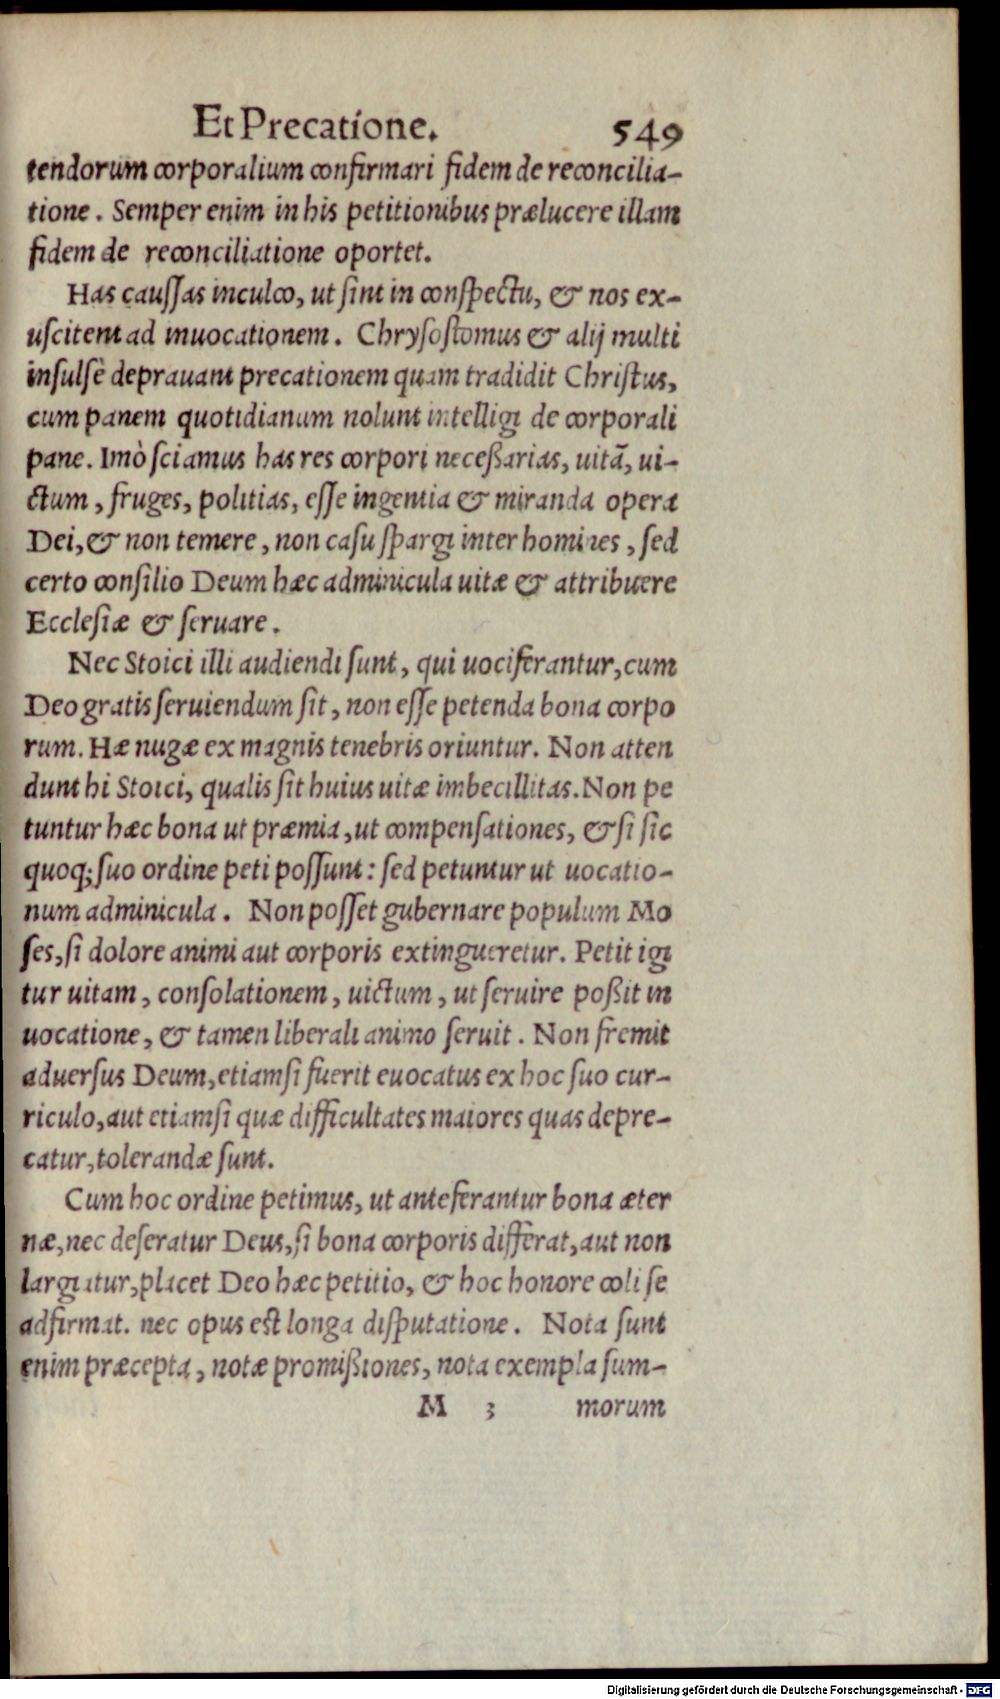 Et Precatione. 549
tendorum corporalium confirmari fidem de reconcilia-
tione. Semper enim in his petitionibus prælucere illam
fidem de reconciliatione oportet.
Has caussas inculco, ut sint in conspectu, & nos ex-
uscitent ad inuocationem. Chrysostomus & alij multi
insulsè deprauant precationem quam tradidit Christus,
cum panem quotidianum nolunt intelligi de corporali
pane. Imò sciamus has res corpori neceßarias, uitã, ui-
ctum, fruges, politias, esse ingentia & miranda opera
Dei, & non temere, non casu spargi inter homines, sed
certo consilio Deum hæc adminicula uitæ & attribuere
Ecclesiæ & seruare.
Nec Stoici illi audiendi sunt, qui uociferantur, cum
Deo gratis seruiendum sit, non esse petenda bona corpo
rum. Hæ nugæ ex magnis tenebris oriuntur. Non atten
dunt hi Stoici, qualis sit huius uitæ imbecillitas. Non pe
tuntur hæc bona ut præmia, ut compensationes, & si sic
quoq; suo ordine peti possunt: sed petuntur ut uocatio-
num adminicula. Non posset gubernare populum Mo
ses, si dolore animi aut corporis extingueretur. Petit igi
tur uitam, consolationem, uictum, ut seruire poßit in
uocatione, & tamen liberali animo seruit. Non fremit
aduersus Deum, etiamsi fuerit euocatus ex hoc suo cur-
riculo, aut etiamsi quæ difficultates maiores quas depre-
catur, tolerandæ sunt.
Cum hoc ordine petimus, ut anteferantur bona æter
næ, nec deseratur Deus, si bona corporis differat, aut non
largiatur, placet Deo hæc petitio, & hoc honore coli se
adfirmat. nec opus est longa disputatione. Nota sunt
enim præcepta, notæ promißiones, nota exempla sum-
M 3 morum
Digitalisierung gefördert durch die Deutsche Forschungsgemeinschaft - DFG